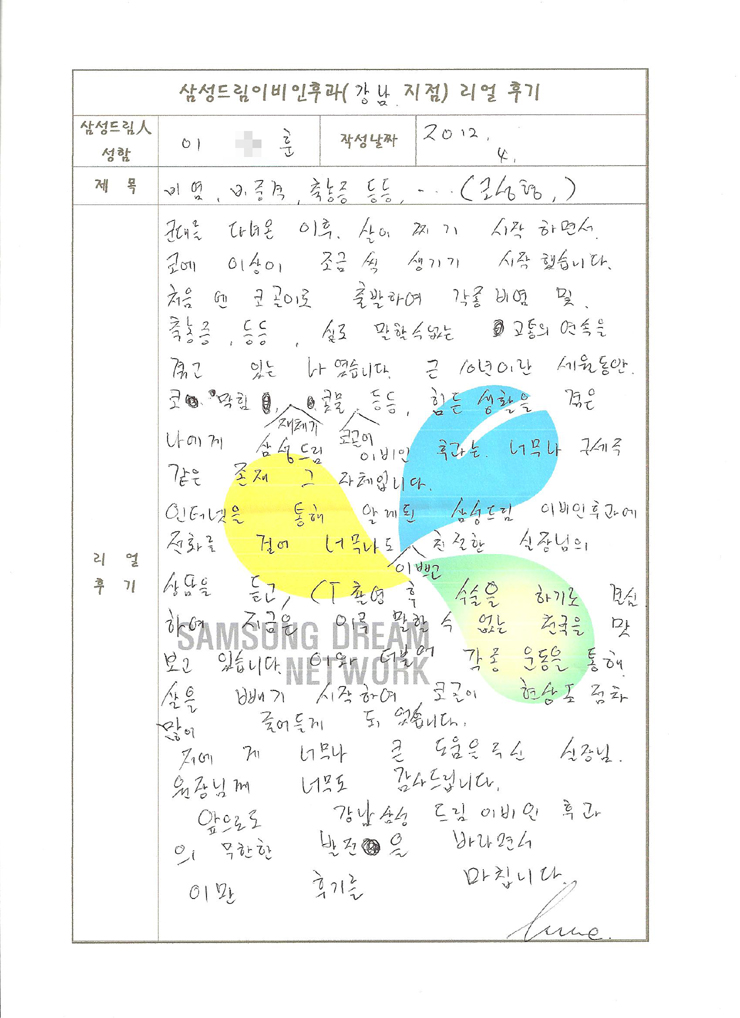 삼성드림이비인후과(강남 지점) 리얼 후기
삼성드림人 성함
이 훈
작성날짜
2012. 4.
제 목
비염, 비중격, 축농증 등등, ... (코성형,)
리 얼 후 기
군대를 다녀온 이후. 살이 찌기 시작 하면서.
코에 이상이 조금 씩 생기기 시작 했습니다.
처음 엔 코골이로 출발하여 각종 비염 및.
축농증, 등등, 실로 말할수없는 고통의 연속을
겪고 있는 나 였습니다. 근 10년이란 세월동안.
코 막힘, 재채기 콧물. 코골이 등등, 힘든 생활을 겪은
나에게 삼성드림 이비인 후과는. 너무나 구세주
같은 존재 그 자체입니다.
인터넷을 통해 알게된 삼성드림 이비인후과에
전화를 걸어 너무나도 이쁘고 친절한 실장님의
상담을 듣고, CT 촬영 후 수술을 하기로 결심.
하여 지금은 이루 말할 수 없는 천국을 맛
보고 있습니다. 이와 더불어 각종 운동을 통해.
살을 빼기 시작하여 코골이 현상도 점차
많이 줄어들게 되 었습니다.
저에 게 너무나 큰 도움을주신 실장님.
원장님께 너무도 감사드립니다.
앞으로도 강남삼성 드림 이비인 후과
의 무한한 발전을 바라면서
이만 후기를 마칩니다.
SAMSONG DREAM
NETWORK